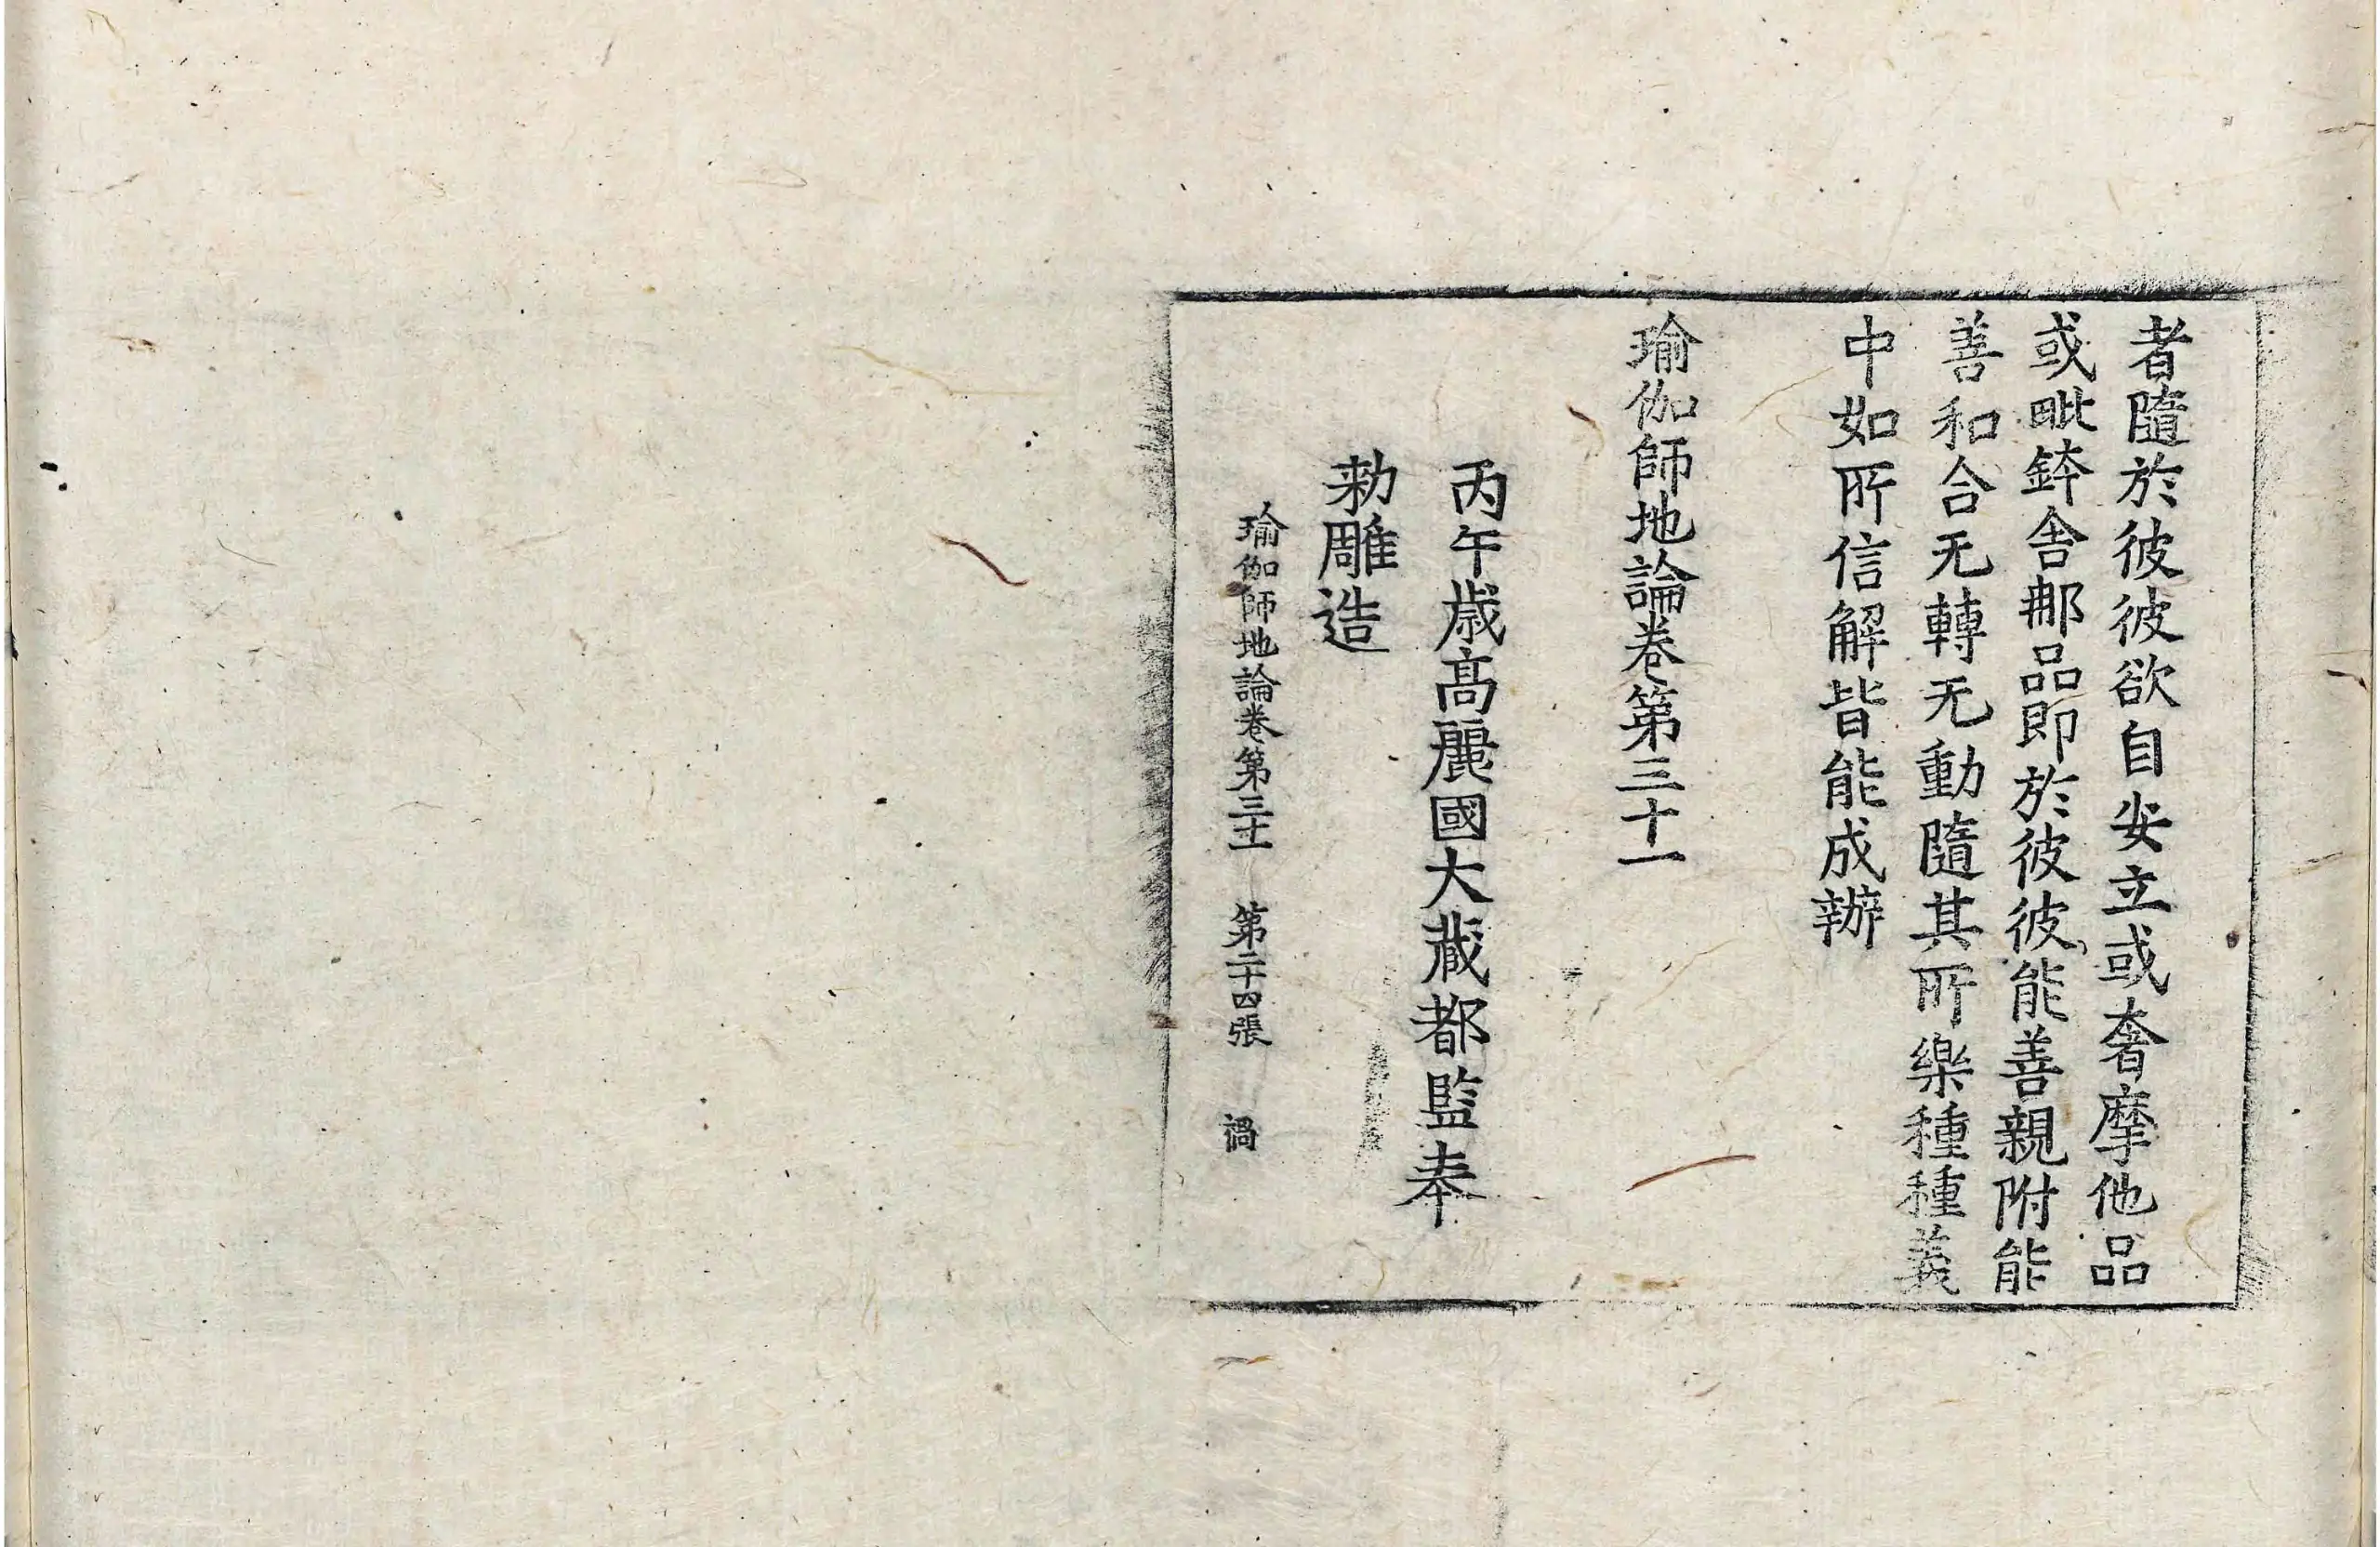 者隨於彼彼欲自安立或奢摩他品
或毗鉢舍那品即於彼彼能善親附能
善和合无轉无動隨其所樂種種義
中如所信解皆能成辦
瑜伽師地論卷第三十一
丙午歲高麗國大藏都監奉
勑雕造
瑜伽師地論卷第三十一 第二十四張 禍